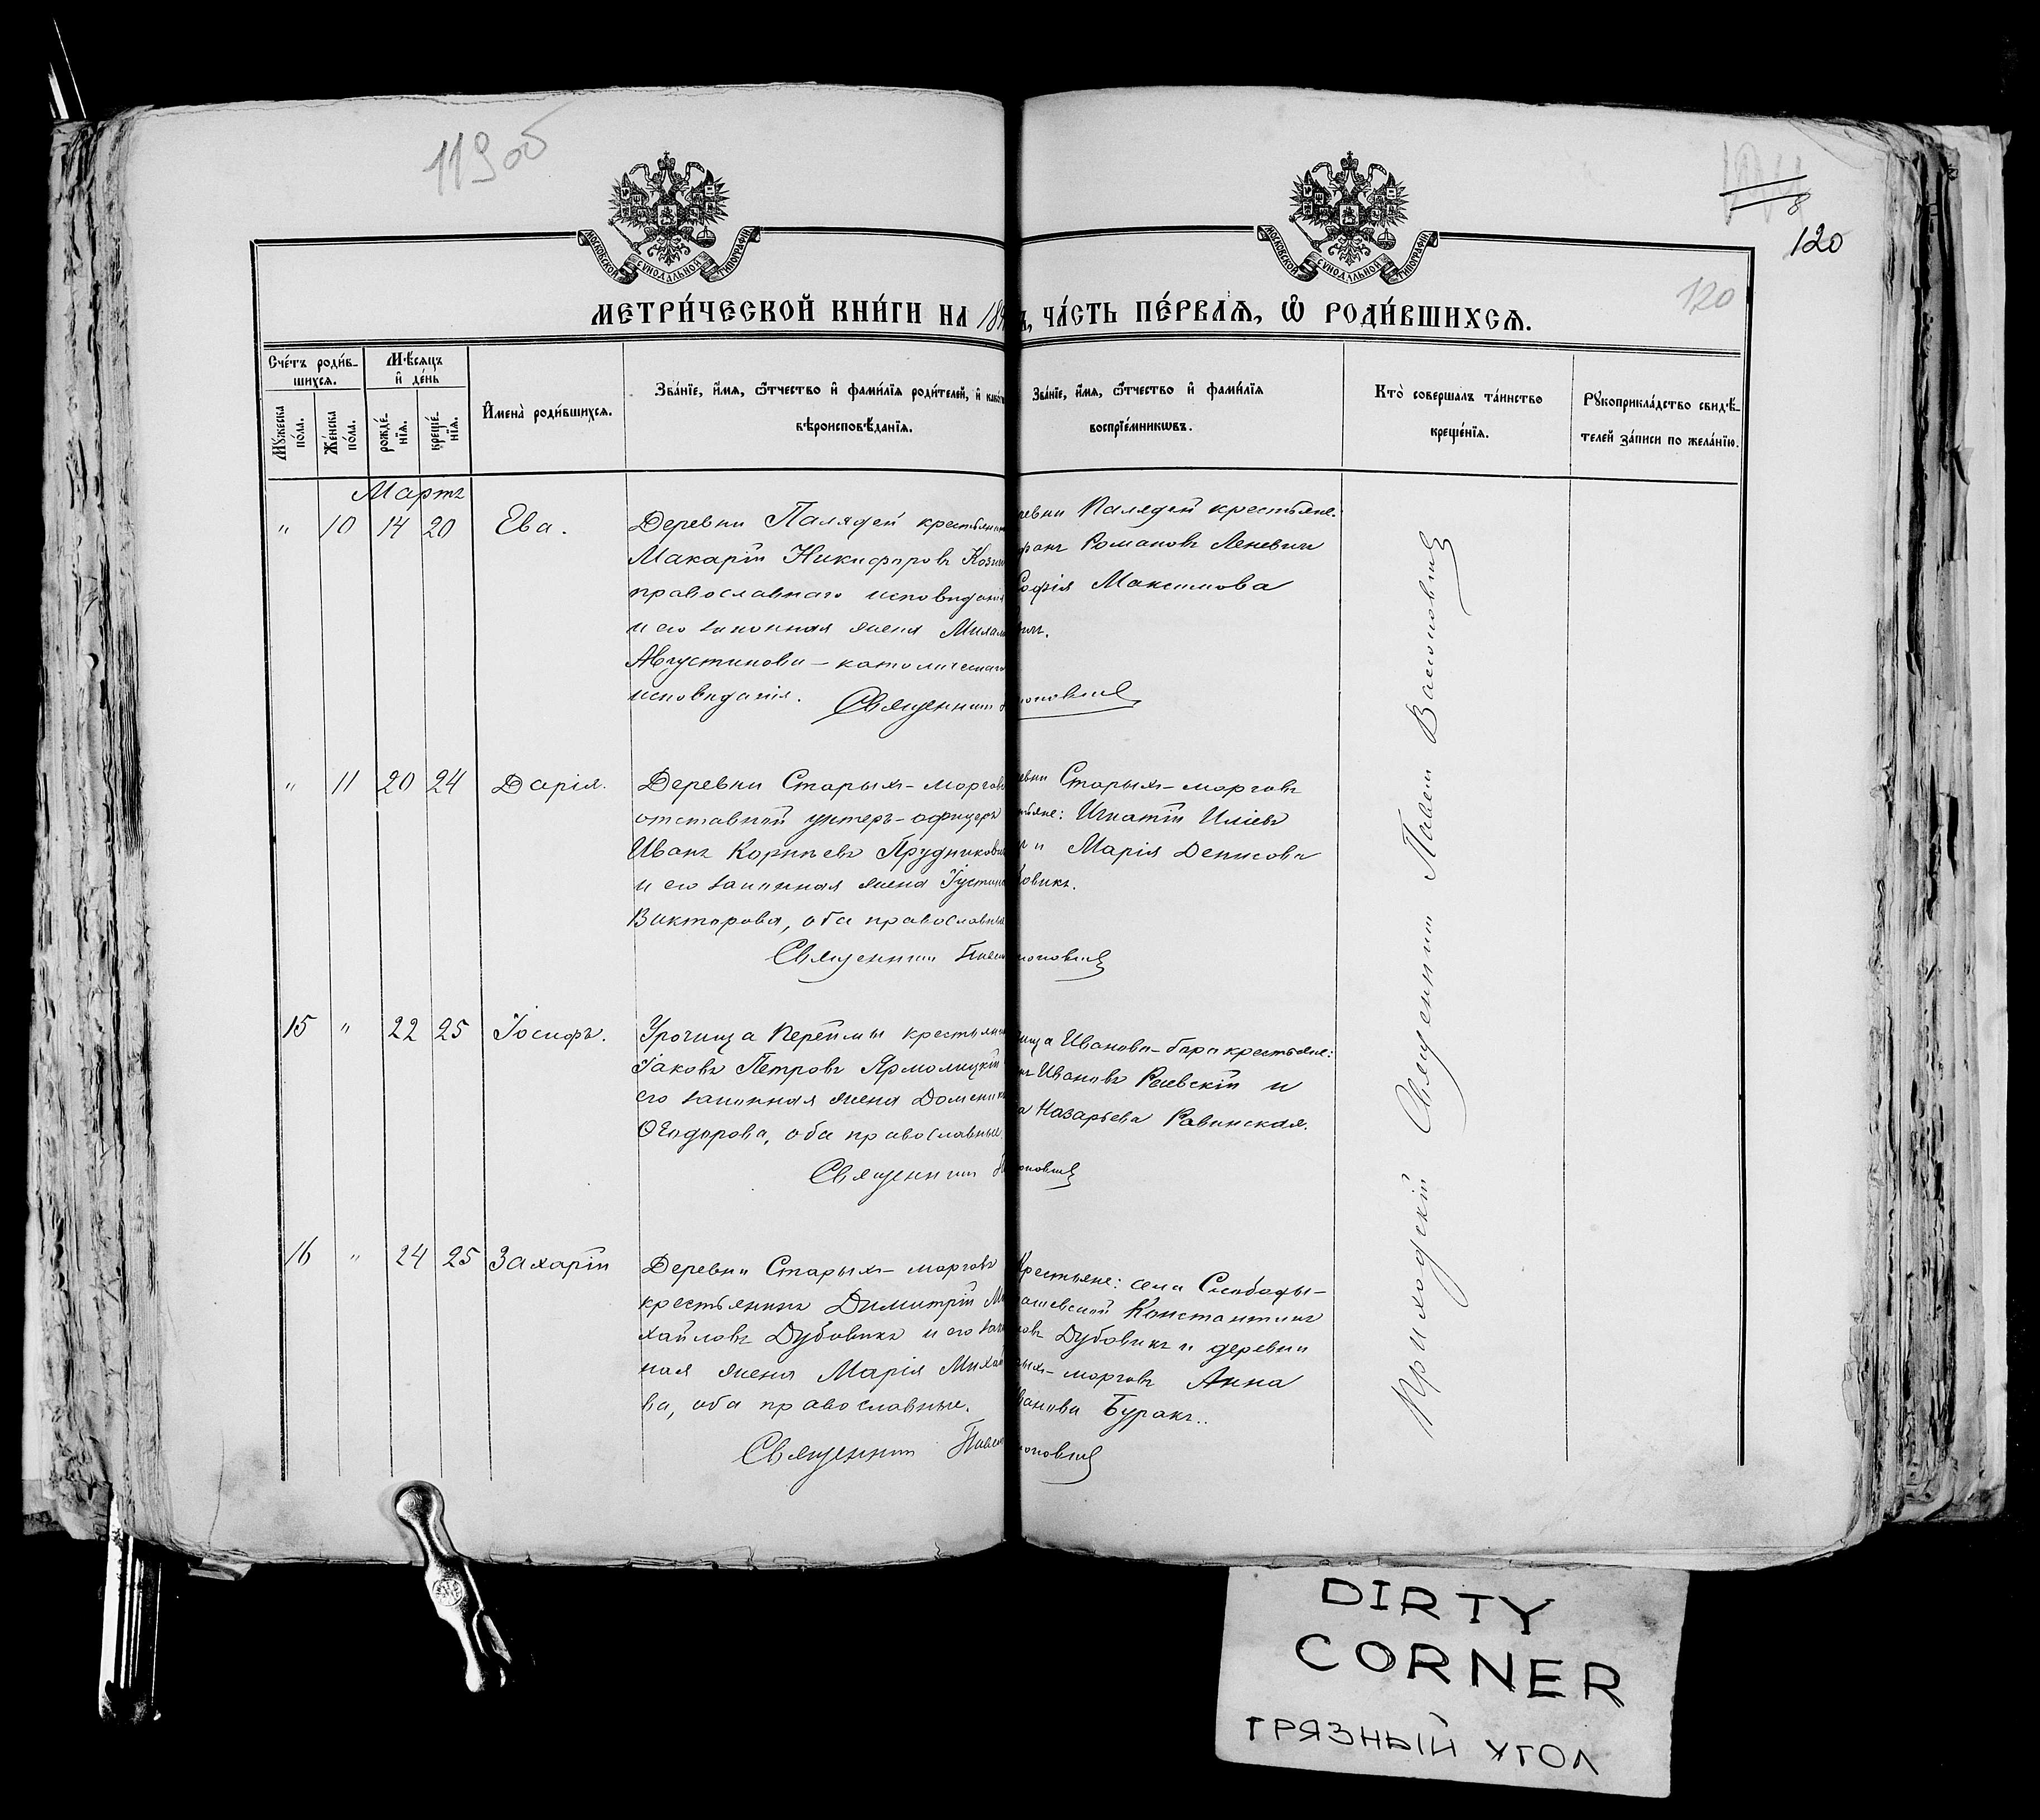 119об
120
120
МОСКОВСКОЙ СѴНОДАЛЬНОЙ ТИПОГРАФІИ
МОСКОВСКОЙ СѴНОДАЛЬНОЙ ТИПОГРАФІИ
МЕТРИ́ЧЕСКОЙ КНИ́ГИ НА 18
ЧА́СТЬ ПЕ́РВАѦ, Ѡ҆ РОДИ́ВШИХСѦ.
Сче́тъ роди́в-
шихсѧ.
Мꙋ́жеска
по́ла.
Же́нска
по́ла.
Мѣ́сяцъ
и҆ де́нь
рожде́-
нїѧ.
креще́-
нїѧ.
И҆мена̀ роди́вшихсѧ.
Зва́нїе, и҆́мѧ, ѻ҆́тчество и҆ фами́лїѧ роди́телей, и҆
вѣроисповѣ́данїѧ.
Зва́нїе, и҆́мѧ, ѻ҆́тчество и҆ фами́лїѧ
воспрїе́мникѡвъ.
Кто̀ соверша́лъ та́инство
креще́нїѧ.
Рꙋкоприкла́дство свидѣ́-
телей за́писи по жела́нїю.
Мартъ
" 10 14 20 Ева.
Деревни Палядей крестьянин
Макарій Никифоровъ
православнаго исповѣданія
и его законная жена
Августинова – католическаго
исповѣданія.
Священникъ
ревни Палядей крестьяне:
Романовъ Леневичъ
Софія Максимова
вичъ.
оновичъ
" 11 20 24 Дарія.
Деревни Старыхъ-морговъ
отставной унтеръ-офицеръ
Иванъ Корнѣевъ Прудникович
и его законная жена Іустина
Викторова, оба православные
Священникъ Павел
евни Старыхъ-морговъ
тьяне: Игнатій Иліевъ
и Марія Денисова
бовикъ.
соновичъ
15 " 22 25 Іосифъ.
Урочища Переймы крестьянинъ
Іаковъ Петровъ Ярмолицкій
его законная жена Домники
Ѳеодорова, оба православные.
Священникъ
ища Иванова-бора крестьяне:
Ивановъ Раевскій и
Назарьева Равинская.
соновичъ
16 " 24 25 Захарій
Деревни Старыхъ-морговъ
крестьянинъ Димитрій Ми
хайловъ Дубовикъ и его закон
ная жена Марія Михай
ва, оба православные.
Священникъ Павел
Крестьяне: села Слободы-
рашевской Константинъ
новъ Дубовикъ и деревни
рыхъ-морговъ Анна
Иванова Буракъ..
соновичъ
Приходскій Священникъ Павелъ Васоновичъ
DIRTY
CORNER
ГРЯЗНЫЙ УГОЛ